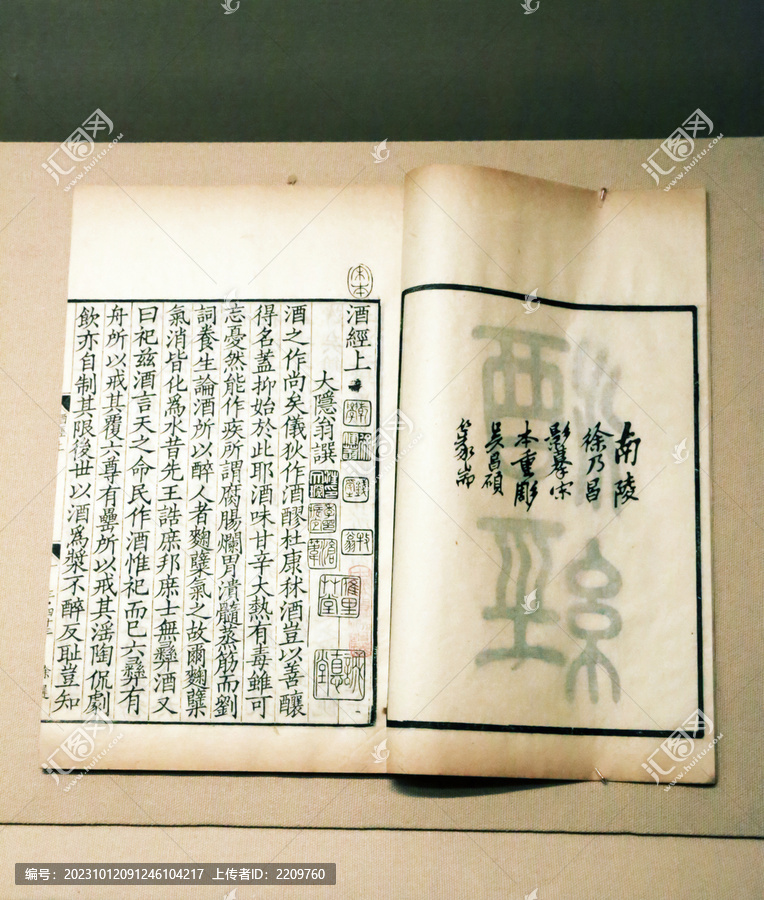 南陵
徐乃昌
影摹宋
本重彫
吳昌碩
篆耑
宋本
酒經上
大隱翁撰
酒之作尚矣儀狄作酒醪杜康秫酒豈以善釀
得名蓋抑始於此耶酒味甘辛大熱有毒雖可
忘憂然能作疾所謂腐腸爛胃潰髓蒸筋而劉
詞養生論酒所以醉人者麴糵氣之故爾麴糵
氣消皆化為水昔先王誥庶邦庶士無彝酒又
曰祀茲酒言天之命民作酒惟祀而已六彝有
舟所以戒其覆六尊有罍所以戒其淫陶侃劇
飲亦自制其限後世以酒為漿不醉反耻豈知
汇图网
www.huitu.com
编号：20231012091246104217 上传者ID：2209760